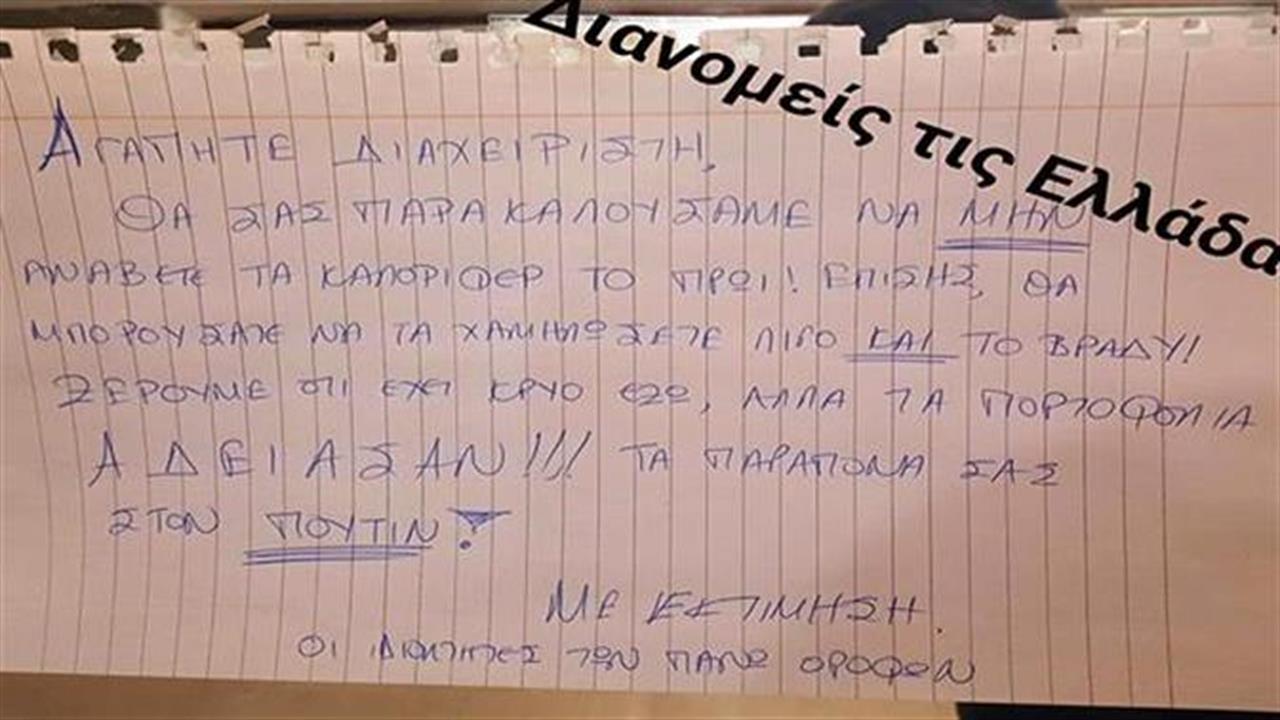 Διανομείς τις Ελλάδα
ΑΓΑΠΗΤΕ ΔΙΑΧΕΙΡΙΣΤΗ,
ΘΑ ΣΑΣ ΠΑΡΑΚΑΛΟΥΣΑΜΕ ΝΑ ΜΗΝ
ΑΝΑΒΕΤΕ ΤΑ ΚΑΛΟΡΙΦΕΡ ΤΟ ΠΡΩΙ! ΕΠΙΣΗΣ, ΘΑ
ΜΠΟΡΟΥΣΑΤΕ ΝΑ ΤΑ ΧΑΜΗΛΩΣΕΤΕ ΛΙΓΟ ΚΑΙ ΤΟ ΒΡΑΔΥ!
ΞΕΡΟΥΜΕ ΟΤΙ ΕΧΕΙ ΚΡΥΟ ΕΞΩ, ΑΛΛΑ ΤΑ ΠΟΡΤΟΦΟΛΙΑ
ΑΔΕΙΑΣΑΝ!!! ΤΑ ΠΑΡΑΠΟΝΑ ΣΑΣ
ΣΤΟΝ ΠΟΥΤΙΝ!
ΜΕ ΕΚΤΙΜΗΣΗ.
ΟΙ ΙΔΙΟΚΤΗΤΕΣ ΤΩΝ ΠΑΝΩ ΟΡΟΦΩΝ